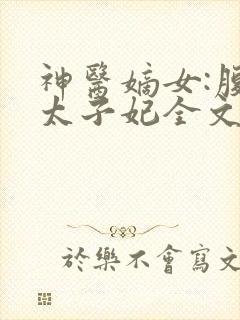 神醫嫡女:
太子妃全文
於樂不會寫文